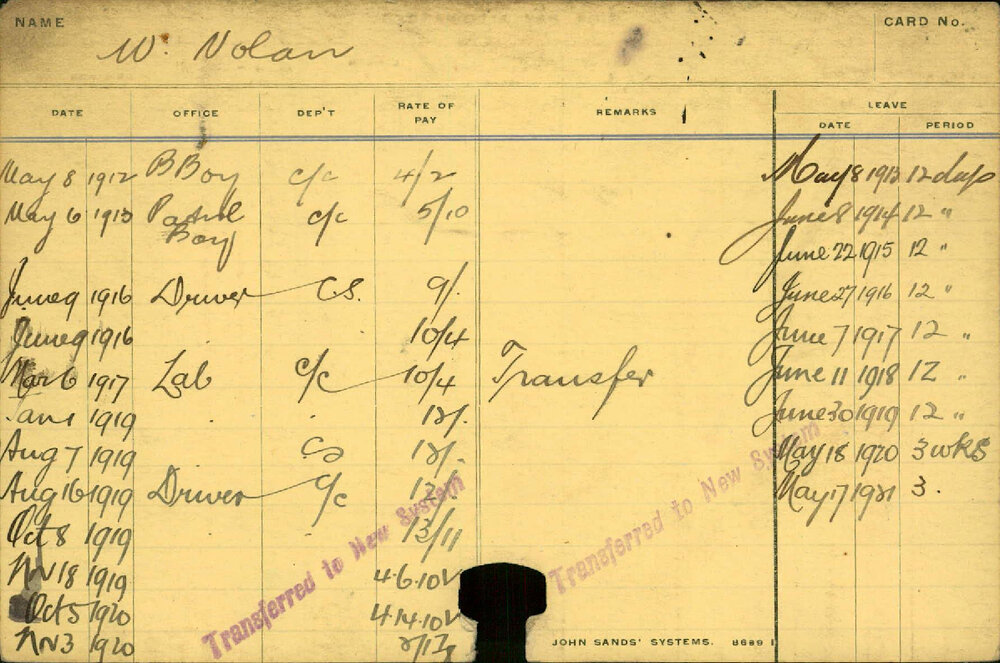 NAME CARD No.
W. Nolan
DATE OFFICE DEP'T RATE OF PAY REMARKS LEAVE
DATE PERIOD
May 8 1912 B Boy c/c 4/2 May 8 1913 12 days
May 6 1913 Patrol c/c 5/10 June 8 1914 12 "
Boy
June 22 1915 12 "
June 9 1916 Driver CS. 9/. June 27 1916 12 "
June 9 1916 10/4 June 7 1917 12 "
Mar 6 1917 Lab c/c 10/4 Transfer June 11 1918 12 "
Jan 1 1919 12/. June 30 1919 12 "
Aug 7 1919 CS 12/. May 18 1920 3 wks
Aug 16 1919 Driver c/c 12/. May 17 1921 3 .
Oct 8 1919 13/11
Nv 18 1919 4.6.10
Oct 5 1920 4.14.10
Nv 3 1920
Transferred to New System
Transferred to New System
JOHN SANDS' SYSTEMS. 8689